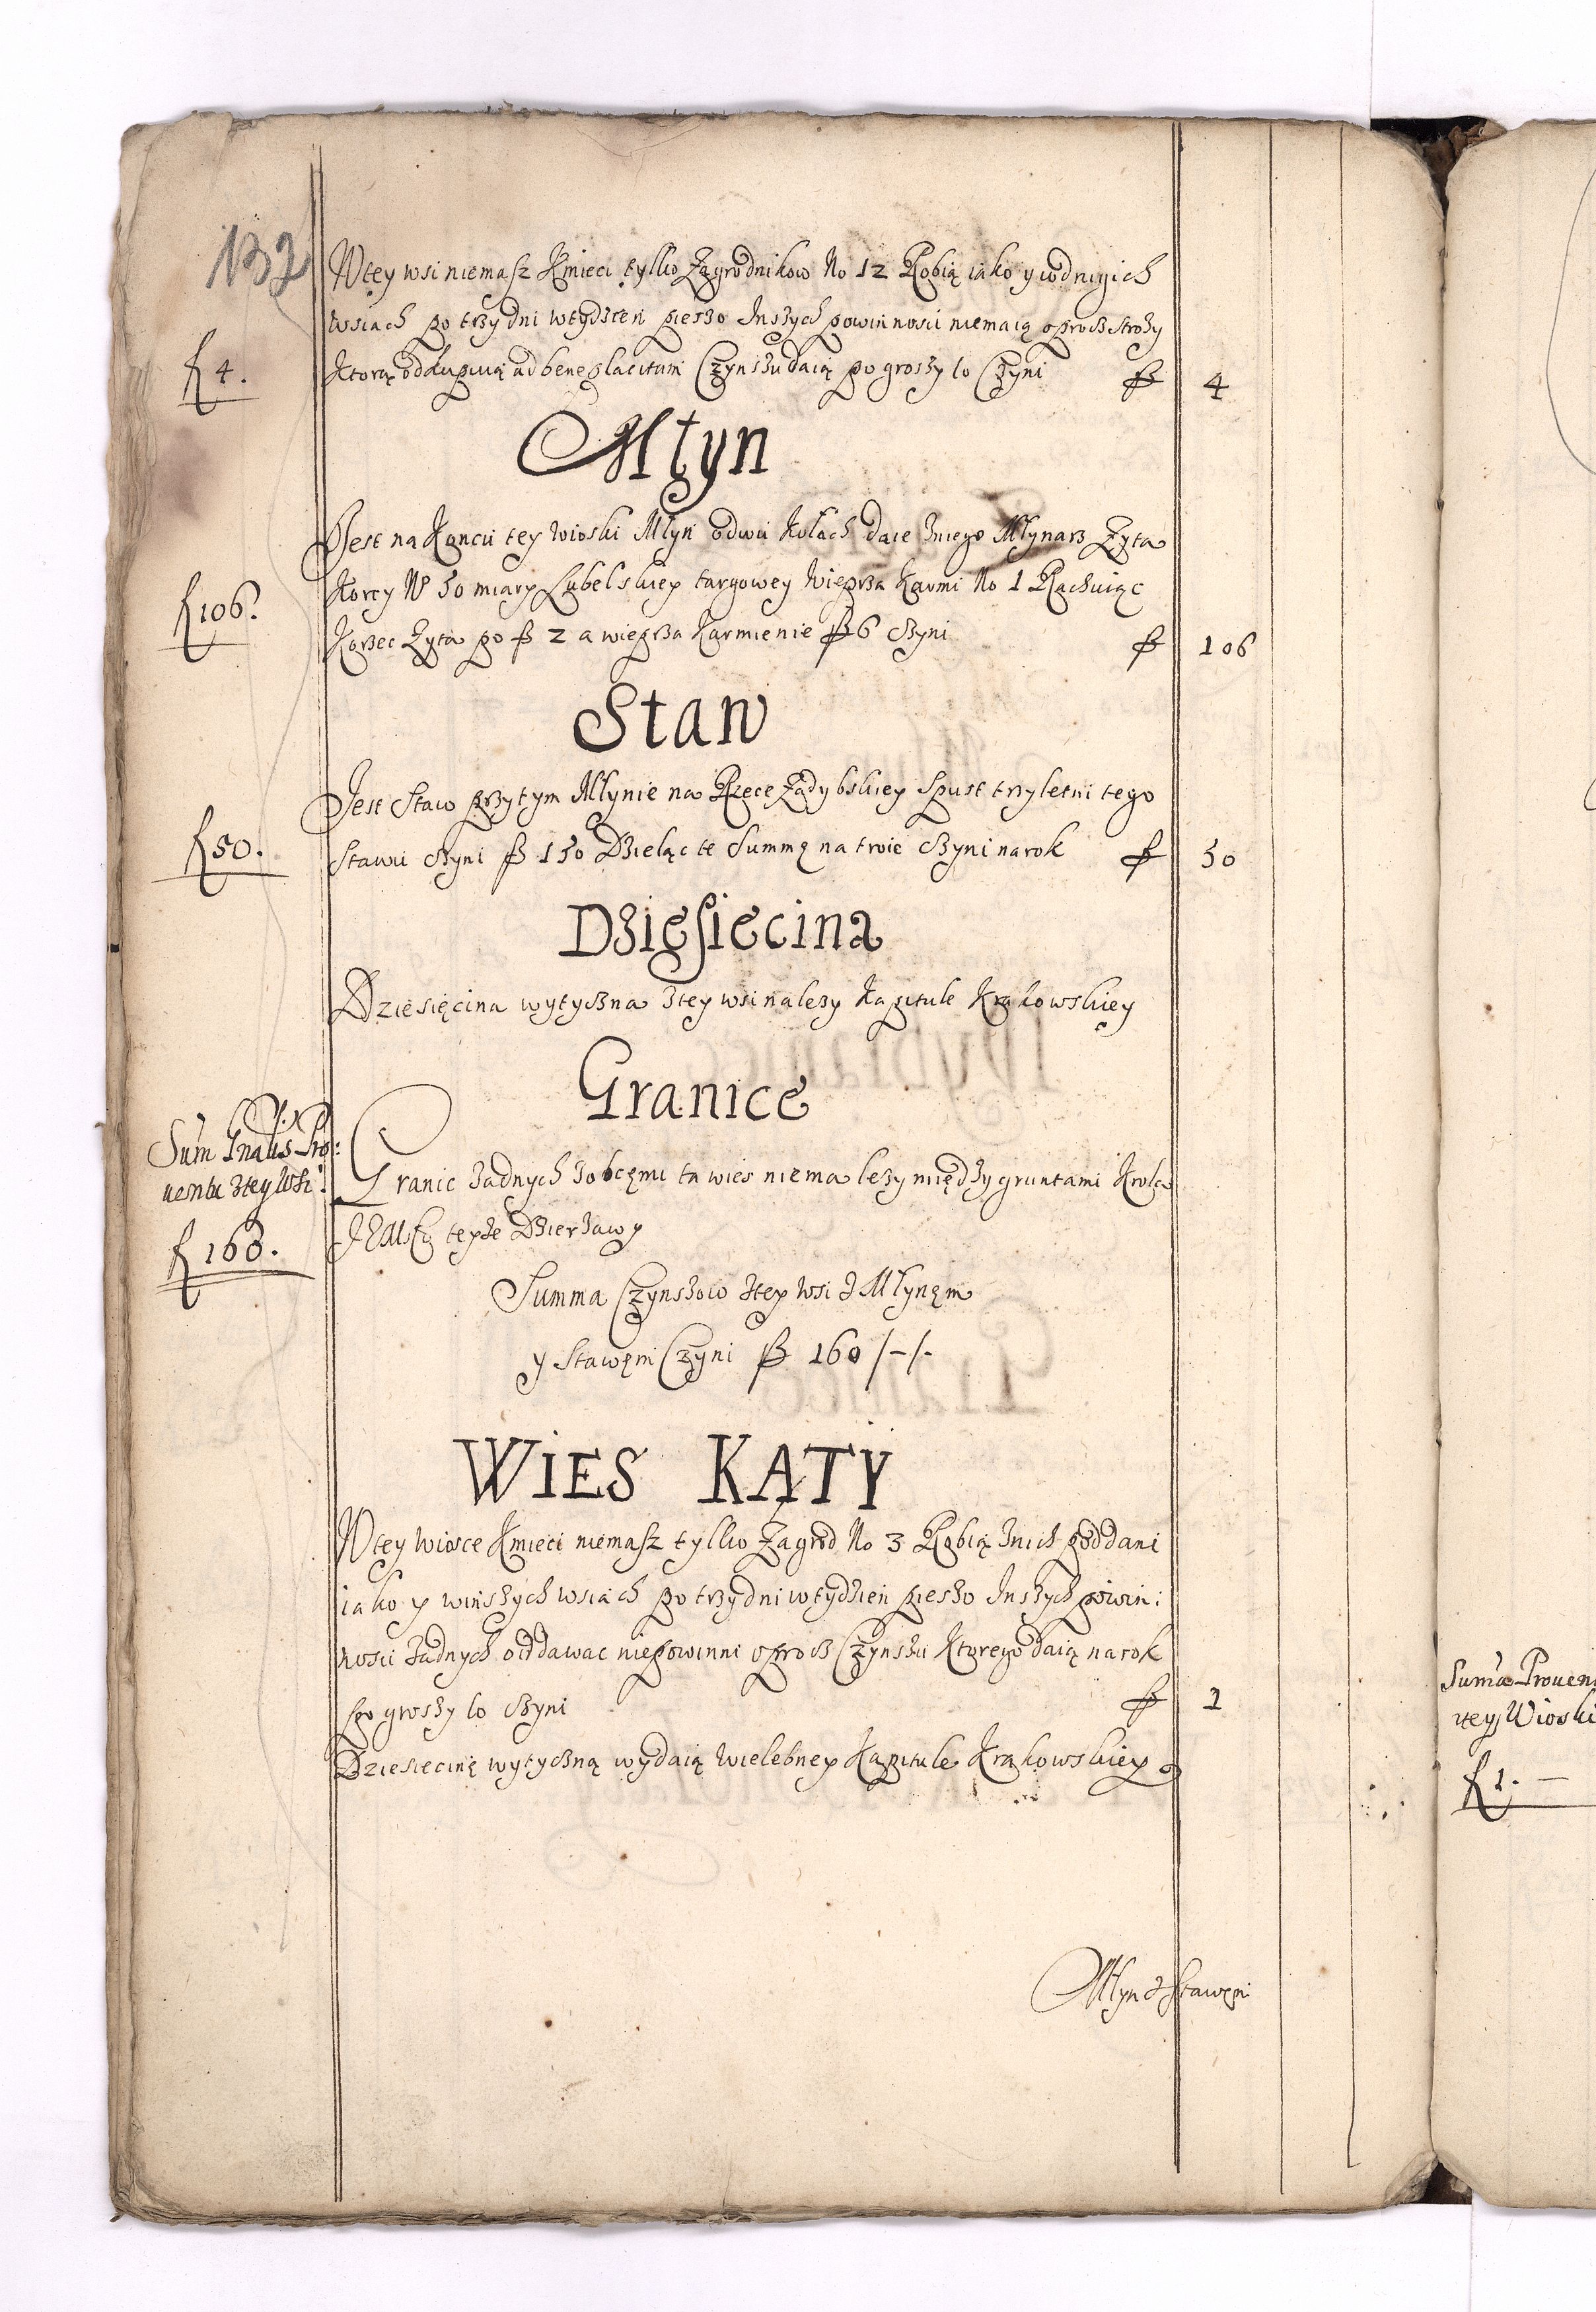 132
Wtey wsi niemasz Kmieci tylko Zagrodnikow No 12 Robią iako y wdrugich
wsiach po trzy dni wtydzien pieszo Inszych powinnosci niemaią oprocz Strozy
Ktorą odkupuią ad beneplacitum Czynszu daią po groszy 10 Czyni f 4
f 4.
Młyn
Jest na Koncu tey wioski Młyn odwu Kołach daie zniego Młynarz Zyta
Korcy No 50 miary Lubelskiey targowey Wieprza Karmi No 1 Rachuiąc
Korzec Zyta po f 2 a wieprza Karmienie f 6 czyni f 106
f 106.
Staw
Jest Staw przytym Młynie na Rzece Zadybskiey Spust trzyletni tego
Stawu czyni f 150 Dzieląc te Summę na troie czyni narok f 50
f 50.
Dzięsięcina
Dziesięcina wytyczna ztey wsi nalezy Kapitule Krakowskiey
Granice
Sum Gnalis Pro:
uentu ztey Wsi.
f 160.
Granic zadnych zobcęmi ta wies niema lezy między gruntami Krola
JEMsci teyze Dzierzawy
Summa Czynszow ztey wsi z Młynęm
y Stawęm Czyni f 160 /-/-
WIES KĄTY
Wtey wiosce Kmieci niemasz tylko Zagrod No 3 Robią znich poddani
iako y winszych wsiach po trzy dni wtydzien pieszo Inszych powin:
nosci zadnych oddawac niepowinni oprocz Czynszu Ktorego daią narok
po groszy 10 czyni f 1
Dziesiecinę wytyczną wydaią Wielebney Kapitule Krakowskiey
Młyn z Stawęm
Suma Prouen
ztey Wioski
f 1. —